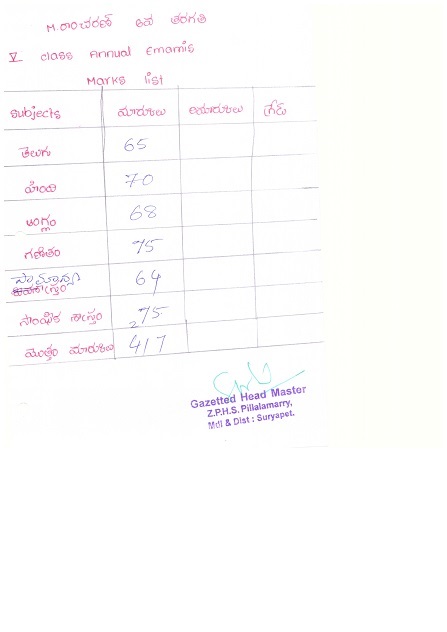 M.రాంచరణ్ 5వ తరగతి
V class Annual Emamis
Marks list
Subjects మారుకులు గ్రేడ్
తెలుగు 65
హిందీ 70
ఆంగ్లం 68
గణితం 75
సామాన్య 64
శాస్త్రం
సాంఘిక శాస్త్రం 75
2
మొత్తం మారుకులు 417
Gazetted Head Master
Z.P.H.S. Pillalamarry,
Mdl & Dist : Suryapet.